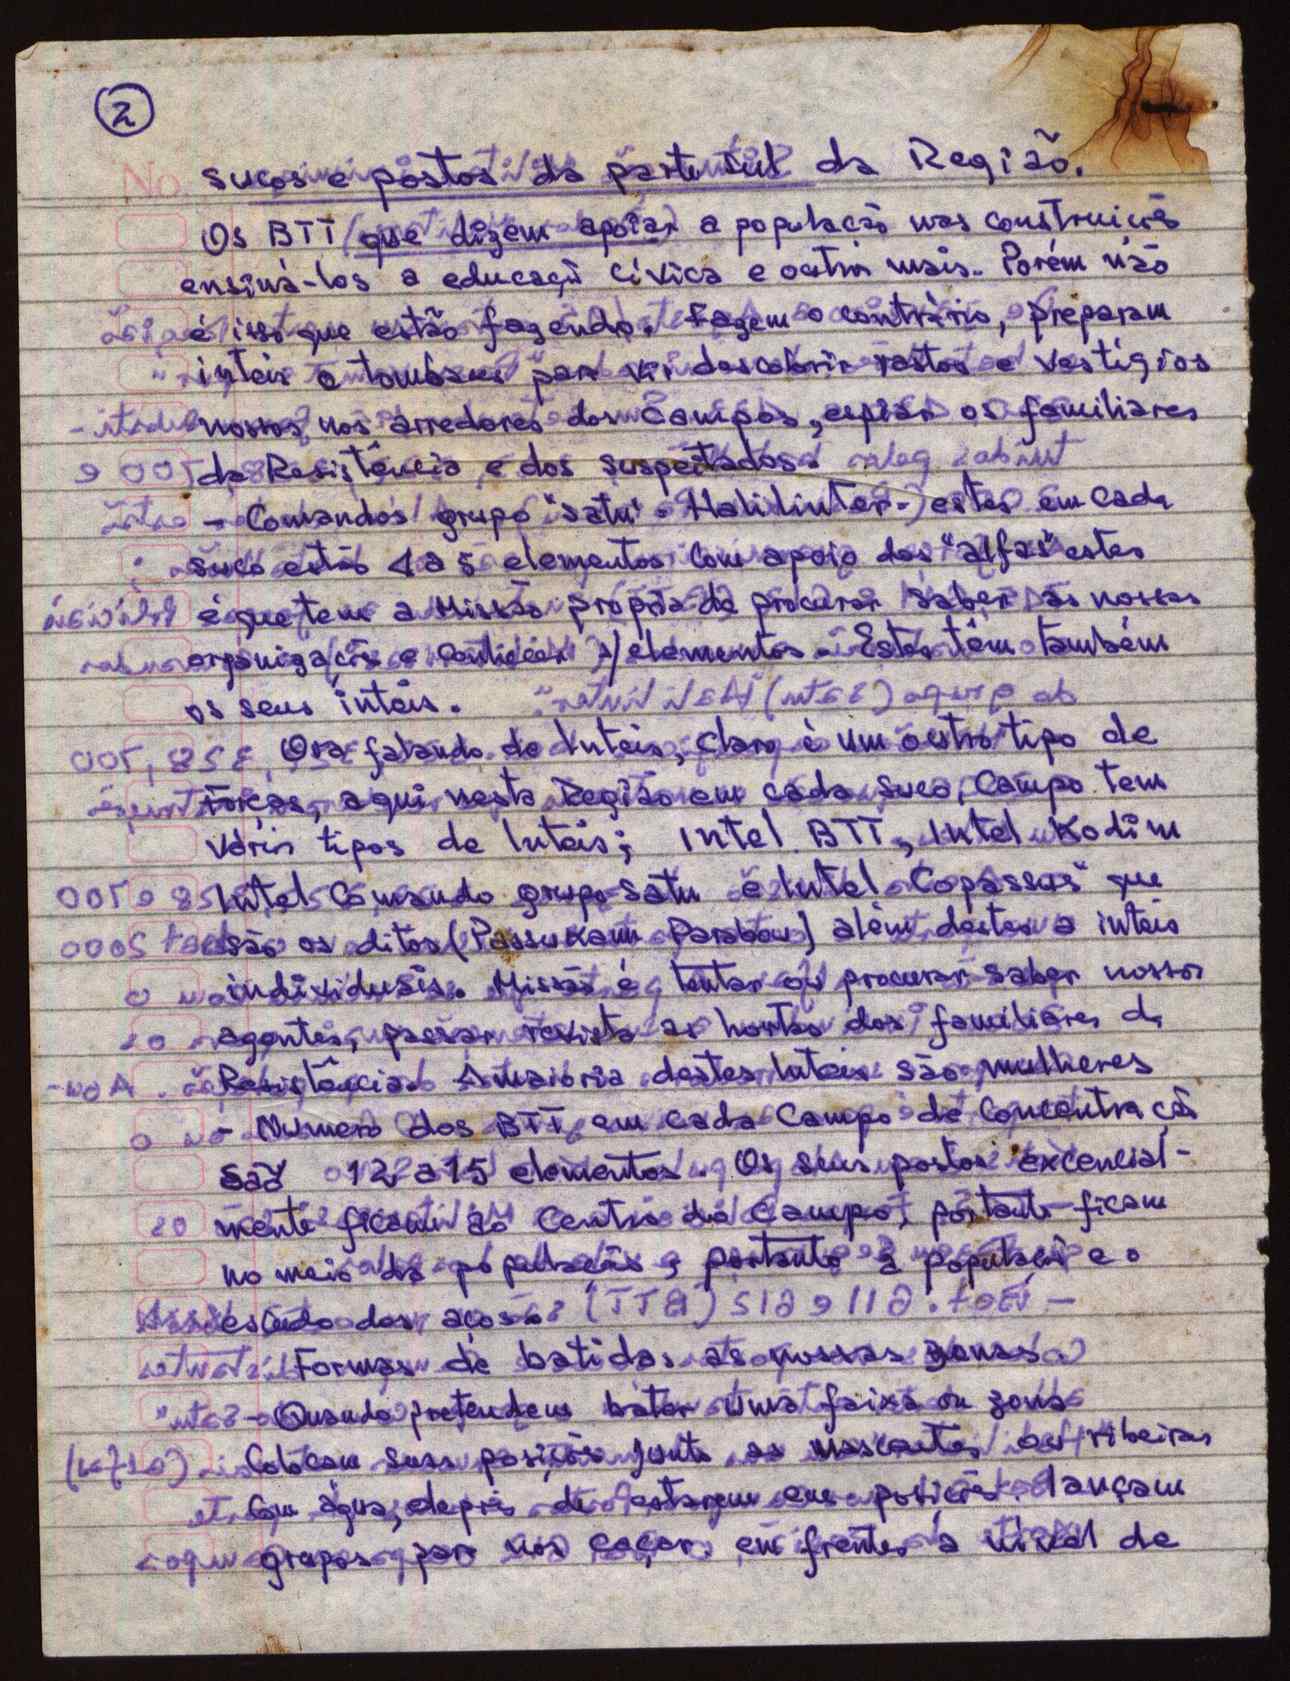 2
sucos e postos da parte sul da Região.
Os BTT (que dizem apoiar) a população nas construições
ensiná-los a educaçã Cívica e outra mais. Porém não
é isso que estão fazendo. Fazem o contrário, preparam
inteis e tombaus para vir descobrir rastos e vestígios
nossos nos arredores dos Campos, espiar os familiares
da Resistência e dos suspeitados.
- Comandos grupo "Satu". Halilinter-) estes em cada
suco estão 4 a 5 elementos com apoio dos "alfas" estes
é que tem a Missão própria de procurar saber as nossas
organizações e Conhecer elementos. Estes têm também
os seus inteis.
Ora falando de Inteis, claro é um outro tipo de
Forças, aqui nesta Região em cada suco, Campo tem
vários tipos de Inteis; Intel BTT, Intel Kodim
Intel Comando grupo Satu e Intel "Copassus" que
são os ditos (Passukann Parabou) além destes a inteis
individuais. Missão é tentar ou procurar saber nossos
agentes, passar revista as hortas dos familiares da
Resistência. A maioria destes Inteis são mulheres
- Numero dos BTT em cada Campo de Concentração
são 12 a 15 elementos. Os seus postos excencial-
mente ficam ao Centro do Campo, portanto ficam
no meio da população, portanto a populaçã e o
escudo dos
Formas de batidas as nossas zonas
- Quando pretendem bater uma faixa ou zona
Colocam suas posições junto as nascentes, as ribeiras
Com água, depois de estarem em posições lançam
grupos para nos caçar. em frentes a nivel de